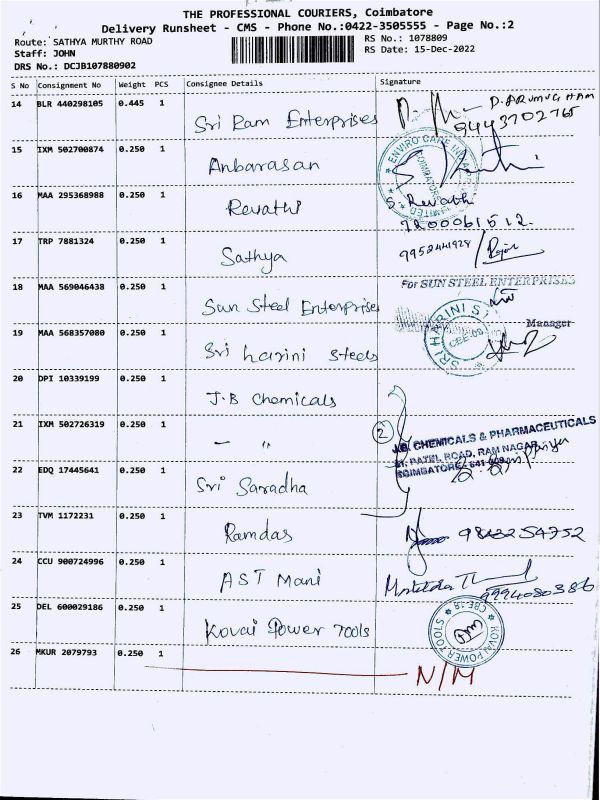 THE PROFESSIONAL COURIERS, Coimbatore
Delivery Runsheet - CMS - Phone No.:0422-3505555 - Page No.:2
Route: SATHYA MURTHY ROAD
Staff: JOHN
DRS No.: DCJB107880902
RS No.: 1078809
RS Date: 15-Dec-2022
S No Consignment No Weight PCS Consignee Details Signature
14 BLR 440298105 0.445 1 Sri Ram Enterprises D. ARUMUGHAM
9443702765
15 IXM 502700874 0.250 1 Anbarasan
ENVIRO CARE COIMBATORE LIMITED
16 MAA 295368988 0.250 1 Revathi S. Revathi
7200061512.
17 TRP 7881324 0.250 1 Sathya 9952441928
18 MAA 569046438 0.250 1 Sun Steel Enterprises For SUN STEEL ENTERPRISES
Manager
19 MAA 568357080 0.250 1 Sri harini Steels SRI HARINI ST CBE-09
20 DPI 10339199 0.250 1 J.B Chemicals
21 IXM 502726319 0.250 1 — " 2
J.B. CHEMICALS & PHARMACEUTICALS
PATEL ROAD, RAM NAGAR,
COIMBATORE - 641 009
22 EDQ 17445641 0.250 1 Sri Saradha
23 TVM 1172231 0.250 1 Ramdas 9843254752
24 CCU 900724996 0.250 1 AST Mani 9994080386
25 DEL 600029186 0.250 1 Kovai Power Tools KOVAI POWER TOOLS CBE-18
26 MKUR 2079793 0.250 1 N/M